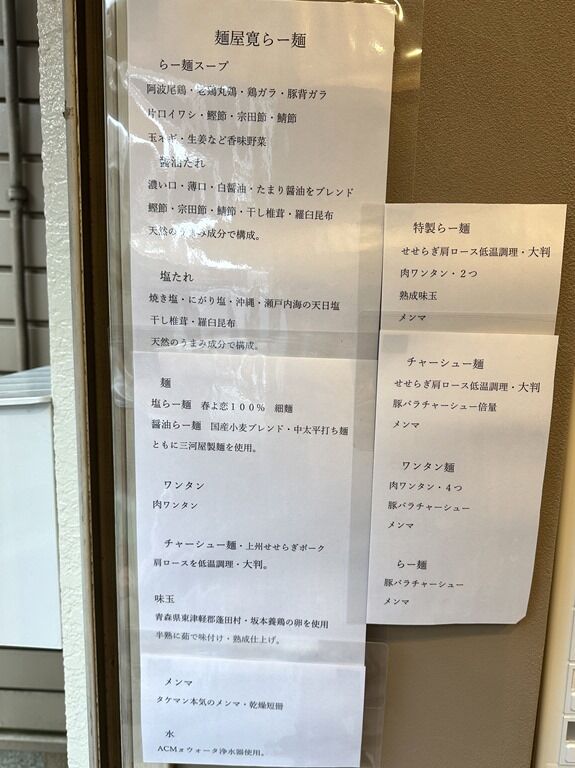 麺屋寛らー麺
らー麺スープ
阿波尾鶏・老鶏丸鶏・鶏ガラ・豚背ガラ
片口イワシ・鰹節・宗田節・鯖節
玉ネギ・生姜など香味野菜
醤油たれ
濃い口・薄口・白醤油・たまり醤油をブレンド
鰹節・宗田節・鯖節・干し椎茸・羅臼昆布
天然のうまみ成分で構成。
塩たれ
焼き塩・にがり塩・沖縄・瀬戸内海の天日塩
干し椎茸・羅臼昆布
天然のうまみ成分で構成。
麺
塩らー麺 春よ恋100% 細麺
醤油らー麺 国産小麦ブレンド・中太平打ち麺
ともに三河屋製麺を使用。
ワンタン
肉ワンタン
チャーシュー麺・上州せせらぎポーク
肩ロースを低温調理・大判。
味玉
青森県東津軽郡蓬田村・坂本養鶏の卵を使用
半熟に茹で味付け・熟成仕上げ。
メンマ
タケマン本気のメンマ・乾燥短冊
水
ACMπウォータ浄水器使用。
特製らー麺
せせらぎ肩ロース低温調理・大判
肉ワンタン・2つ
熟成味玉
メンマ
チャーシュー麺
せせらぎ肩ロース低温調理・大判
豚バラチャーシュー倍量
メンマ
ワンタン麺
肉ワンタン・4つ
豚バラチャーシュー
メンマ
らー麺
豚バラチャーシュー
メンマ